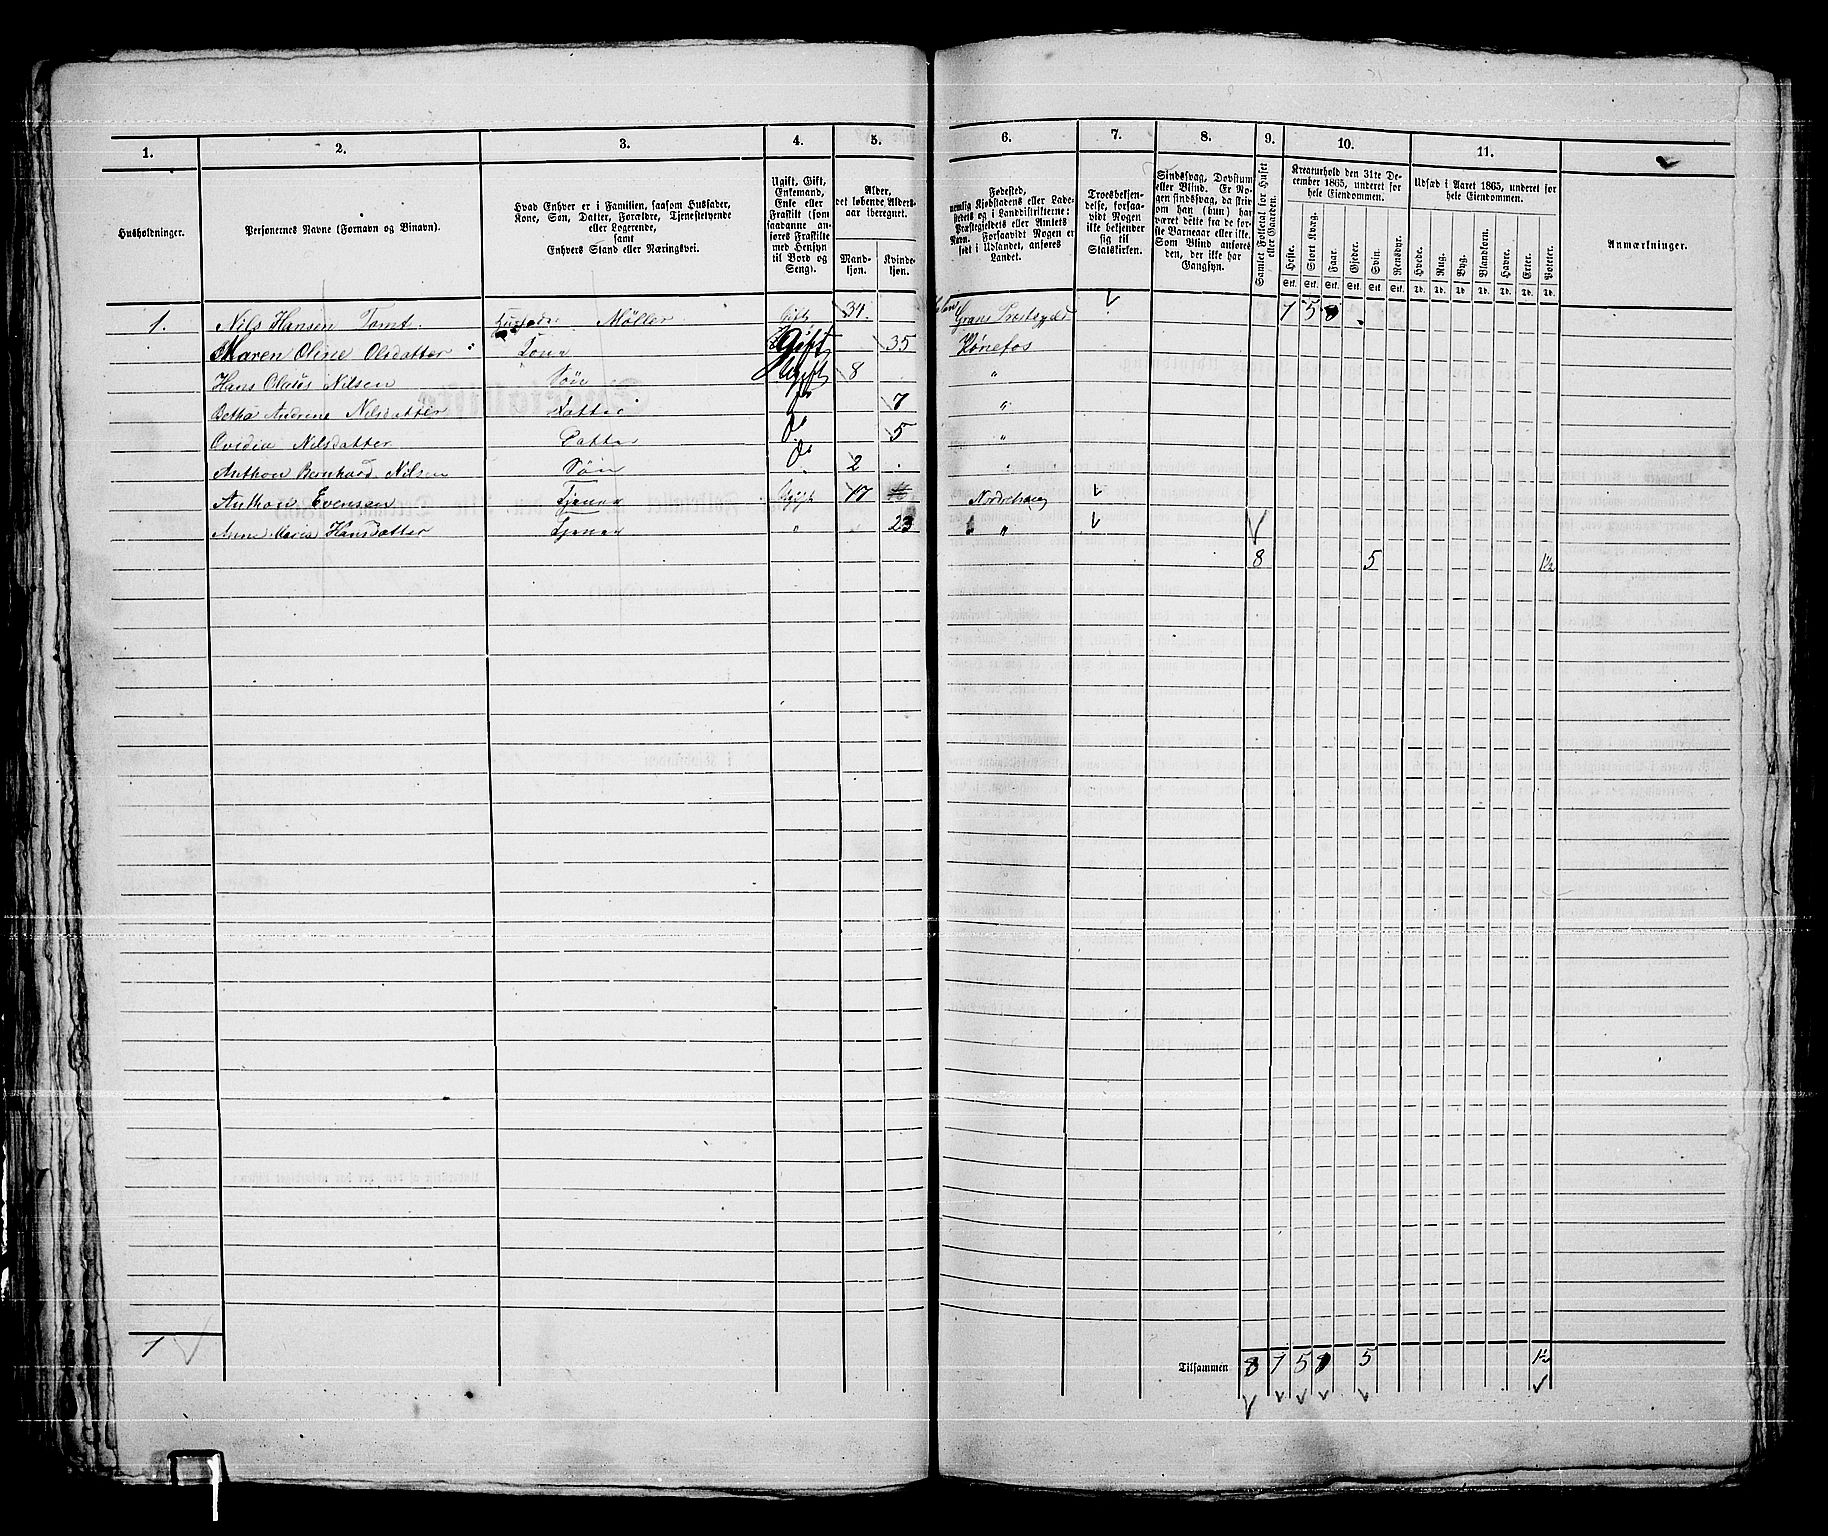 1. 2. 3. 4. 5. 6. 7. 8. 9. 10. 11.
Husholdninger.
Personernes Navne (Fornavn og Binavn).
Hvad Enhver er i Familien, saasom Husfader,
Kone, Søn, Datter, Forældre, Tjenestetyende
eller Logerende,
samt
Enhvers Stand eller Næringsvei.
Ugift, Gift,
Enkemand,
Enke eller
Fraskilt (som
saadanne an-
føres Fraskilte
med Hensyn
til Bord og
Seng).
Alder,
det løbende Alders-
aar iberegnet.
Mand-
kjøn.
Kvinde-
kjøn.
Fødested,
nemlig Kjøbstadens eller Lade-
stedets og i Landdistrikterne:
Præstegjeldets eller Amtets
Navn. Forsaavidt Nogen er
født i Udlandet, anføres
Landet.
Troesbekjen-
delse, forsaa-
vidt Nogen
ikke bekjender
sig til
Statskirken.
Sindssvag, Døvstum
eller Blind. Er No-
gen sindssvag, da skrives
om han (hun) har
været dette fra de før-
ste Barneaar eller ikke.
Som Blind anføres
den, der ikke har
Gangsyn.
Samlet Folketal for Huset
eller Gaarden.
Kreaturhold den 31te De-
cember 1865, underet for
hele Eiendommen.
Heste. Stort Kvæg. Faar. Gjeder. Svin. Rensdyr.
Stk. Stk. Stk. Stk. Stk. Stk.
Udsæd i Aaret 1865, underet for
hele Eiendommen.
Hvede. Rug. Byg. Blandkorn. Havre. Erter. Poteter.
Td. Td. Td. Td. Td. Td. Td.
Anmærkninger.
1. Nils Hansen Tomt. Husfader Møller Gift 34. Grans Prestegjeld 1 5 8
Maren Oline Olsdatter Kone Gift 35 Hønefos
Hans Olaus Nilsen Søn Ugift 8 "
Betha Andrine Nilsdatter Datter do 7 "
Ovidia Nilsdatter Datter do 5 "
Anthon Bernhard Nilsen Søn do 2 "
Anthon Evensen Tjener Ugift 17 Norderhaug
Anne Maria Hansdatter Tjener " 23 "
8 5 1½
1
Tilsammen 8 1 5 8 5 1½